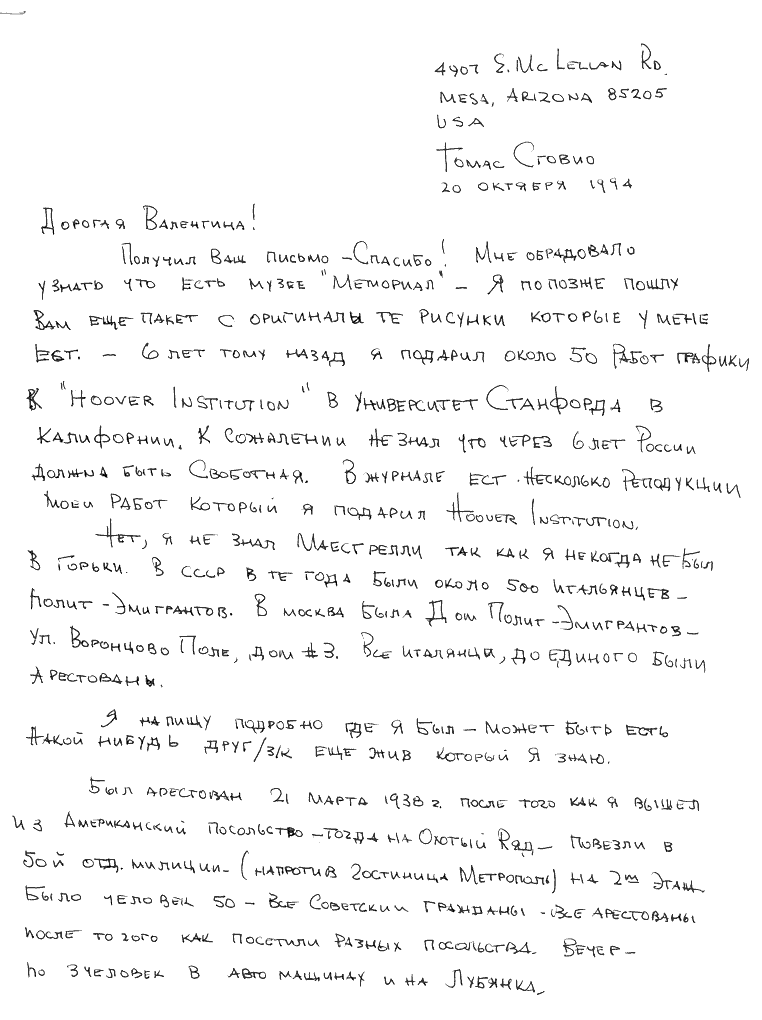 4907 E. Mc Lellan Rd.
Mesa, Arizona 85205
USA
Томас Сговио
20 октября 1994
Дорогая Валентина!
Получил Ваш письмо – Спасибо! Мне обрадовало
узнать что есть музее "Мемориал" – Я по позже пошлу
Вам еще пакет с оригиналы те рисунки которые у мене
ест. – 6 лет тому назад я подарил около 50 работ графики
к "Hoover Institution" в Университет Станфорда в
Калифорнии. К сожалении не знал что через 6 лет России
должна быть Своботная. В журнале ест несколько Реподукции
моеи работ который я подарил Hoover Institution.
Нет, я не знал Маестрелли так как я некогда не был
в Горьки. В СССР в те года были около 500 итальянцев –
полит-эмигрантов. В москва была Дом Полит-Эмигрантов –
ул. Воронцово Поле, дом #3. Все италянци, до единого были
арестованы.
Я напишу подробно где я был – может быть есть
какой нибудь друг/з/к еще жив который я знаю.
Был арестован 21 марта 1938 г. после того как я вышел
из Американский посольство – тогда на Охотый Ряд – повезли в
50й отд. милиции – (напротив Гостиница Метрополь) на 2ом этаж
Было человек 50 – все Советскии гражданы – все арестованы
после то гого как посетили разных посольства. Вечер –
по 3 человек в авто машинах и на Лубянка.